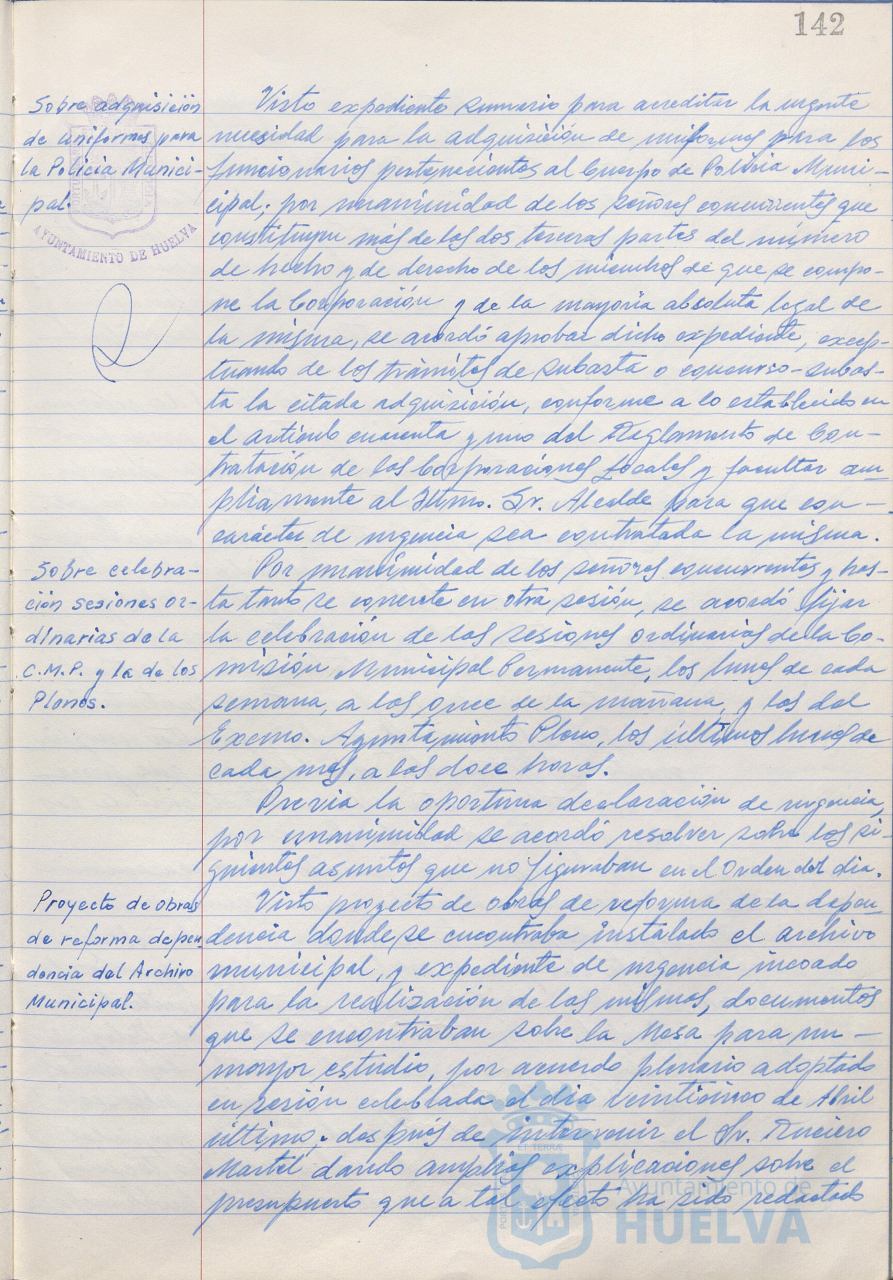 142
Sobre adquisición
de uniformes para
la Policía Munici-
pal.
AYUNTAMIENTO DE HUELVA
Visto expediente sumario para acreditar la urgente
necesidad para la adquisición de uniformes para los
funcionarios pertenecientes al Cuerpo de Policía Muni-
cipal; por unanimidad de los señores concurrentes que
constituyen más de las dos terceras partes del número
de hecho y de derecho de los miembros de que se compo-
ne la Corporación y de la mayoría absoluta legal de
la misma, se acordó aprobar dicho expediente, excep-
tuando de los trámites de subasta o concurso-subas-
ta la citada adquisición, conforme a lo establecido en
el artículo cuarenta y uno del Reglamento de Con-
tratación de las Corporaciones Locales y facultar am-
pliamente al Iltmo. Sr. Alcalde para que con-
carácter de urgencia sea contratada la misma.
Sobre celebra-
ción sesiones or-
dinarias de la
C.M.P. y la de los
Plenos.
Por unanimidad de los señores concurrentes y has-
ta tanto se concrete en otra sesión, se acordó fijar
la celebración de las sesiones ordinarias de la Co-
misión Municipal Permanente, los lunes de cada
semana, a las once de la mañana, y las del
Excmo. Ayuntamiento Pleno, los últimos lunes de
cada mes, a las doce horas.
Previa la oportuna declaración de urgencia,
por unanimidad se acordó resolver sobre los si-
guientes asuntos que no figuraban en el Orden del día.
Proyecto de obras
de reforma depen
dencia del Archivo
Municipal.
Visto proyecto de obras de reforma de la depen-
dencia donde se encontraba instalado el archivo
municipal, y expediente de urgencia incoado
para la realización de las mismas, documentos
que se encontraban sobre la Mesa para un-
mayor estudio, por acuerdo plenario adoptado
en sesión celebrada el día veinticinco de Abril
último; después de intervenir el Sr.
Martel dando amplias explicaciones sobre el
presupuesto que a tal efecto ha sido redactado
Ayuntamiento de
HUELVA